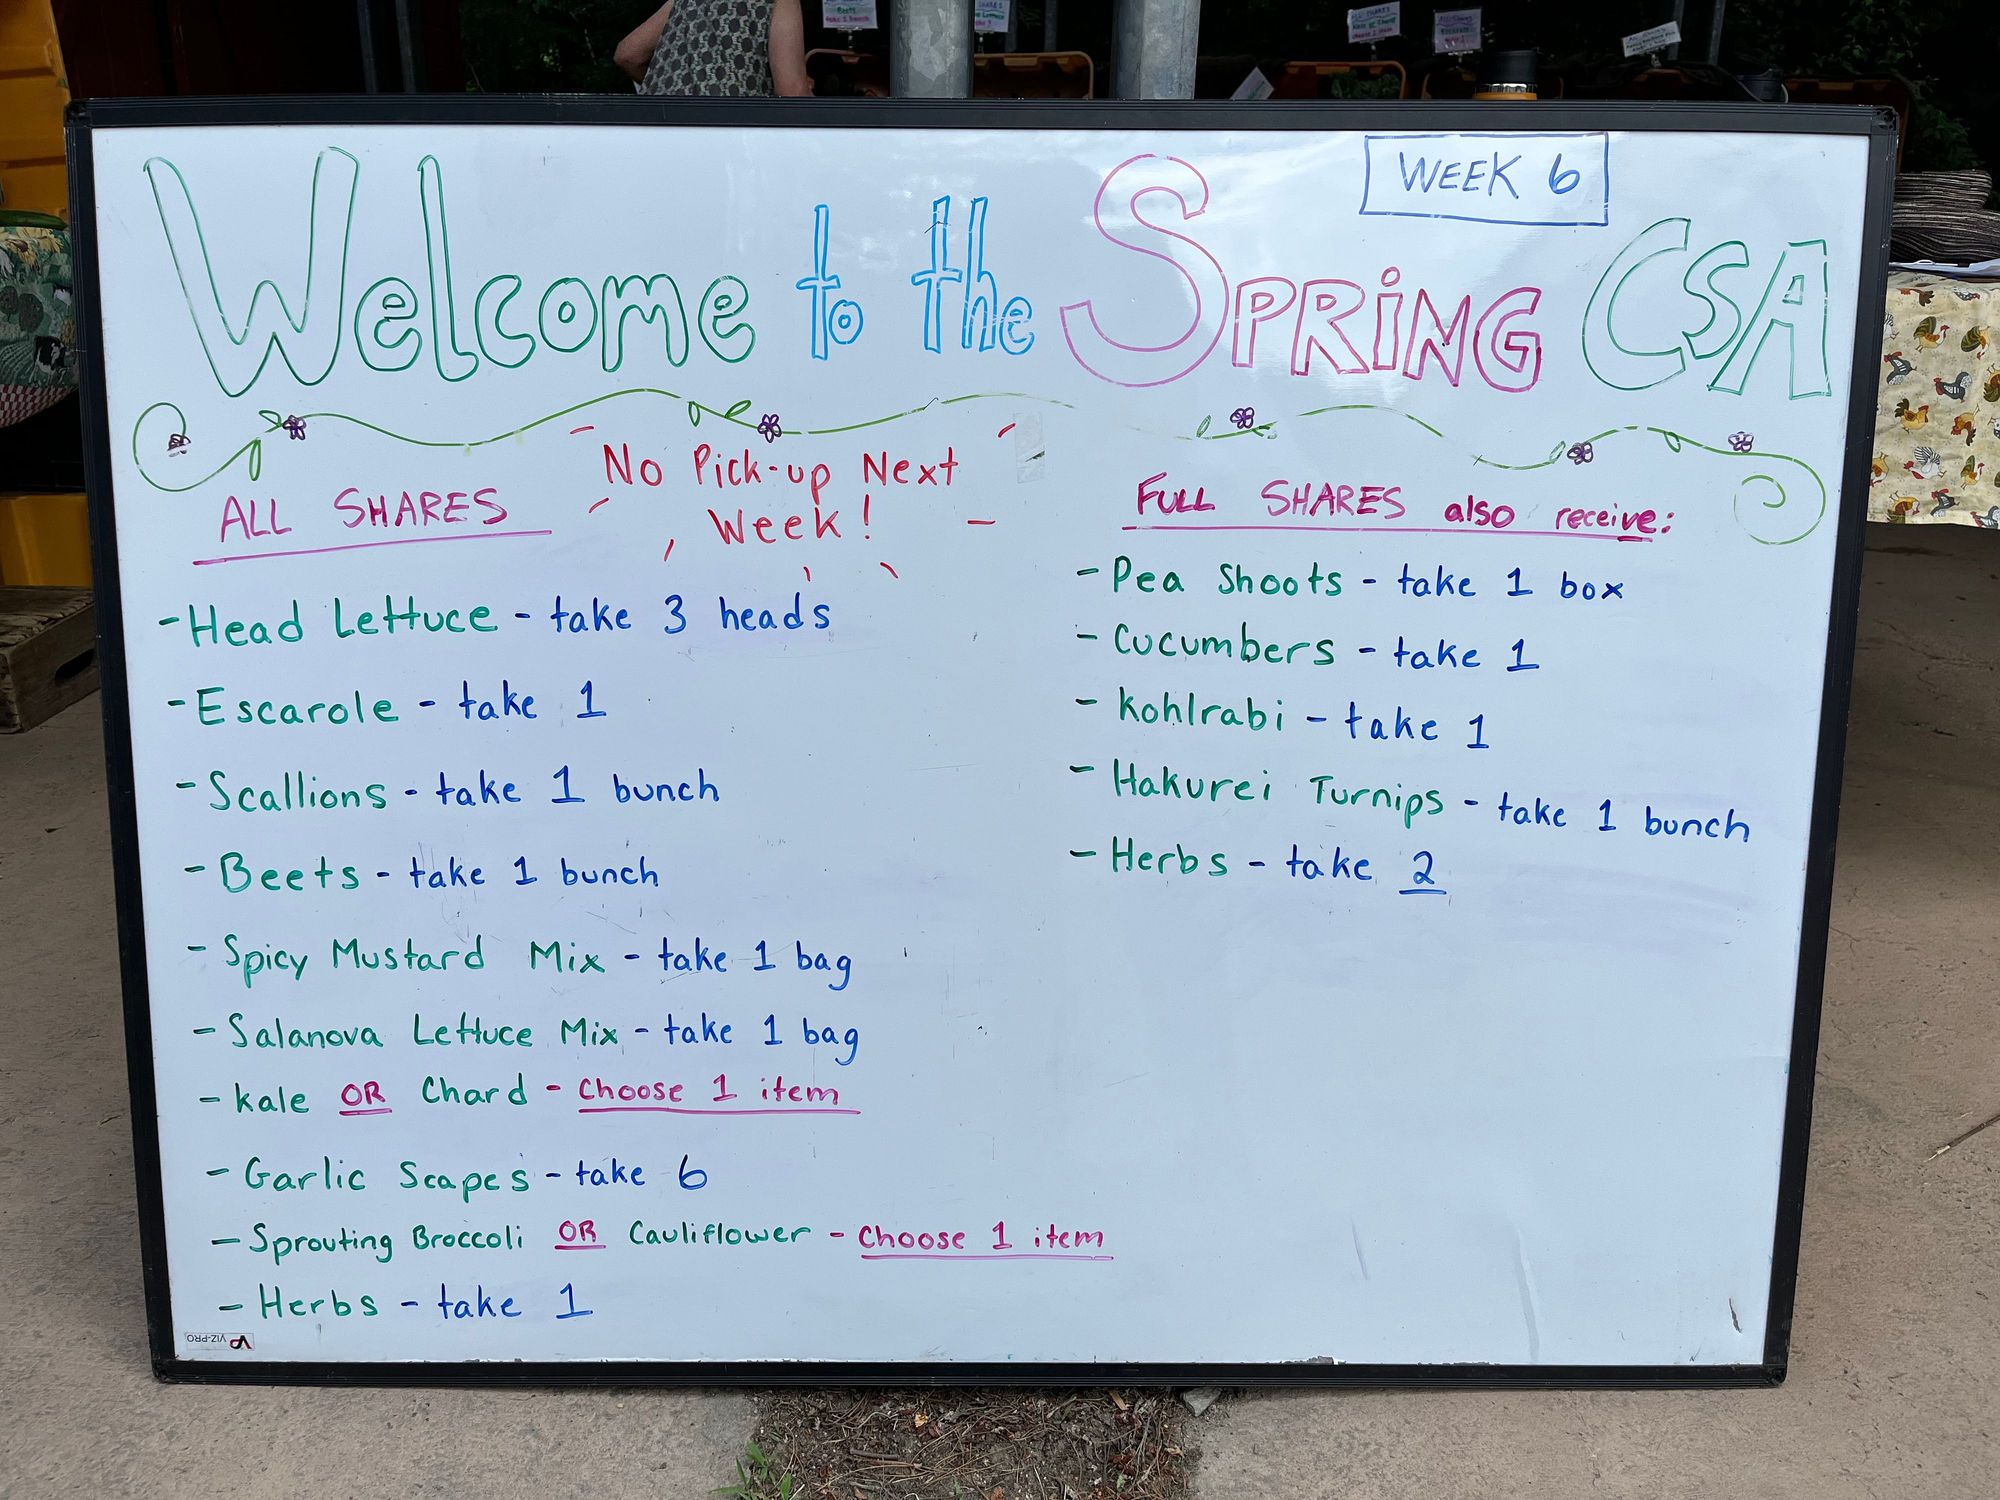 WEEK 6
Welcome to the SPRING CSA
No Pick-up Next
Week!
ALL SHARES
-Head Lettuce - take 3 heads
-Escarole - take 1
-Scallions - take 1 bunch
-Beets - take 1 bunch
-Spicy Mustard Mix - take 1 bag
-Salanova Lettuce Mix - take 1 bag
-Kale OR Chard - Choose 1 item
-Garlic Scapes - take 6
-Sprouting Broccoli OR Cauliflower - Choose 1 item
-Herbs - take 1
FULL SHARES also receive:
-Pea Shoots - take 1 box
-Cucumbers - take 1
-Kohlrabi - take 1
-Hakurei Turnips - take 1 bunch
-Herbs - take 2
VIZ-PRO